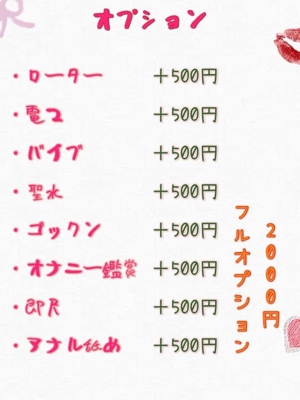 オプション
・ローター ＋500円
・電マ ＋500円
・バイブ ＋500円
・聖水 ＋500円
・ゴックン ＋500円
・オナニー鑑賞 ＋500円
・即尺 ＋500円
・アナル舐め ＋500円
フルオプション
2000円